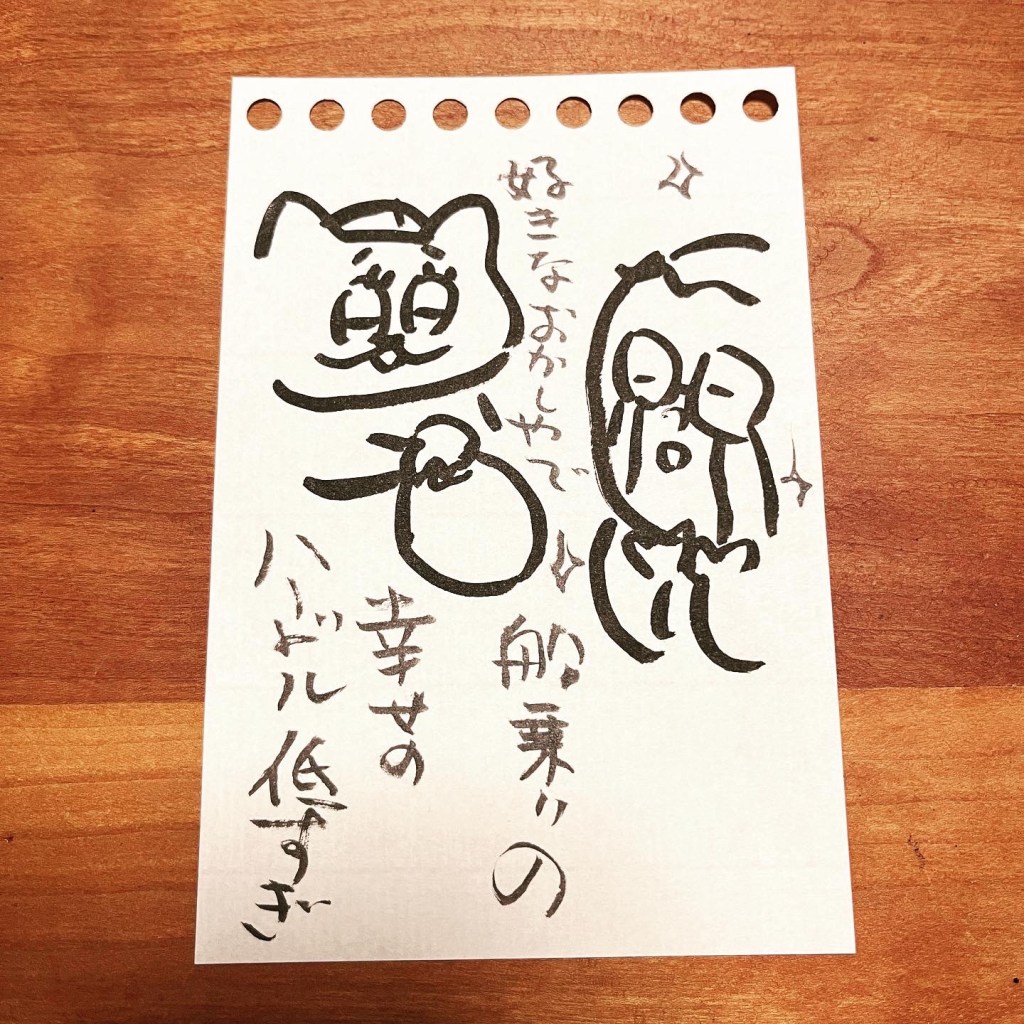 好きなおかしやで
船乗りの
幸せの
ハードル低すぎ